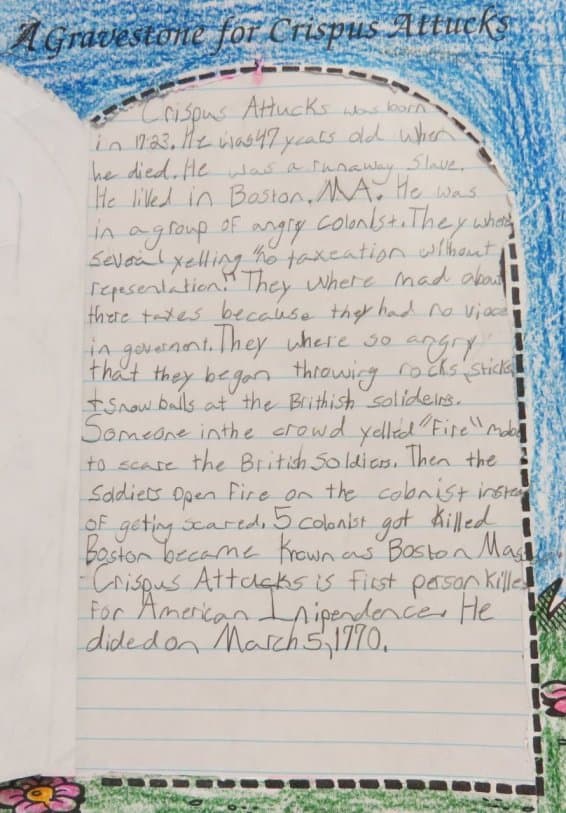 A Gravestone for Crispus Attucks
Crispus Attucks was born
in 1723. He was 47 years old when
he died. He was a runaway slave.
He lived in Boston, MA. He was
in a group of angry colonist. They where
several yelling "no taxeation without
representation!" They where mad about
there taxes because they had no vioce
in govermont. They where so angry
that they began throwing rocks, sticks
+ snow balls at the Brithish soliders.
Someone inthe crowd yelled "Fire"
to scare the British Soldiers. Then the
Soldiers open fire on the colonist
of geting scared. 5 colonist got killed
Boston became known as Boston
Crispus Attacks is first person killed
For American Inipendence. He
dided on March 5, 1770.